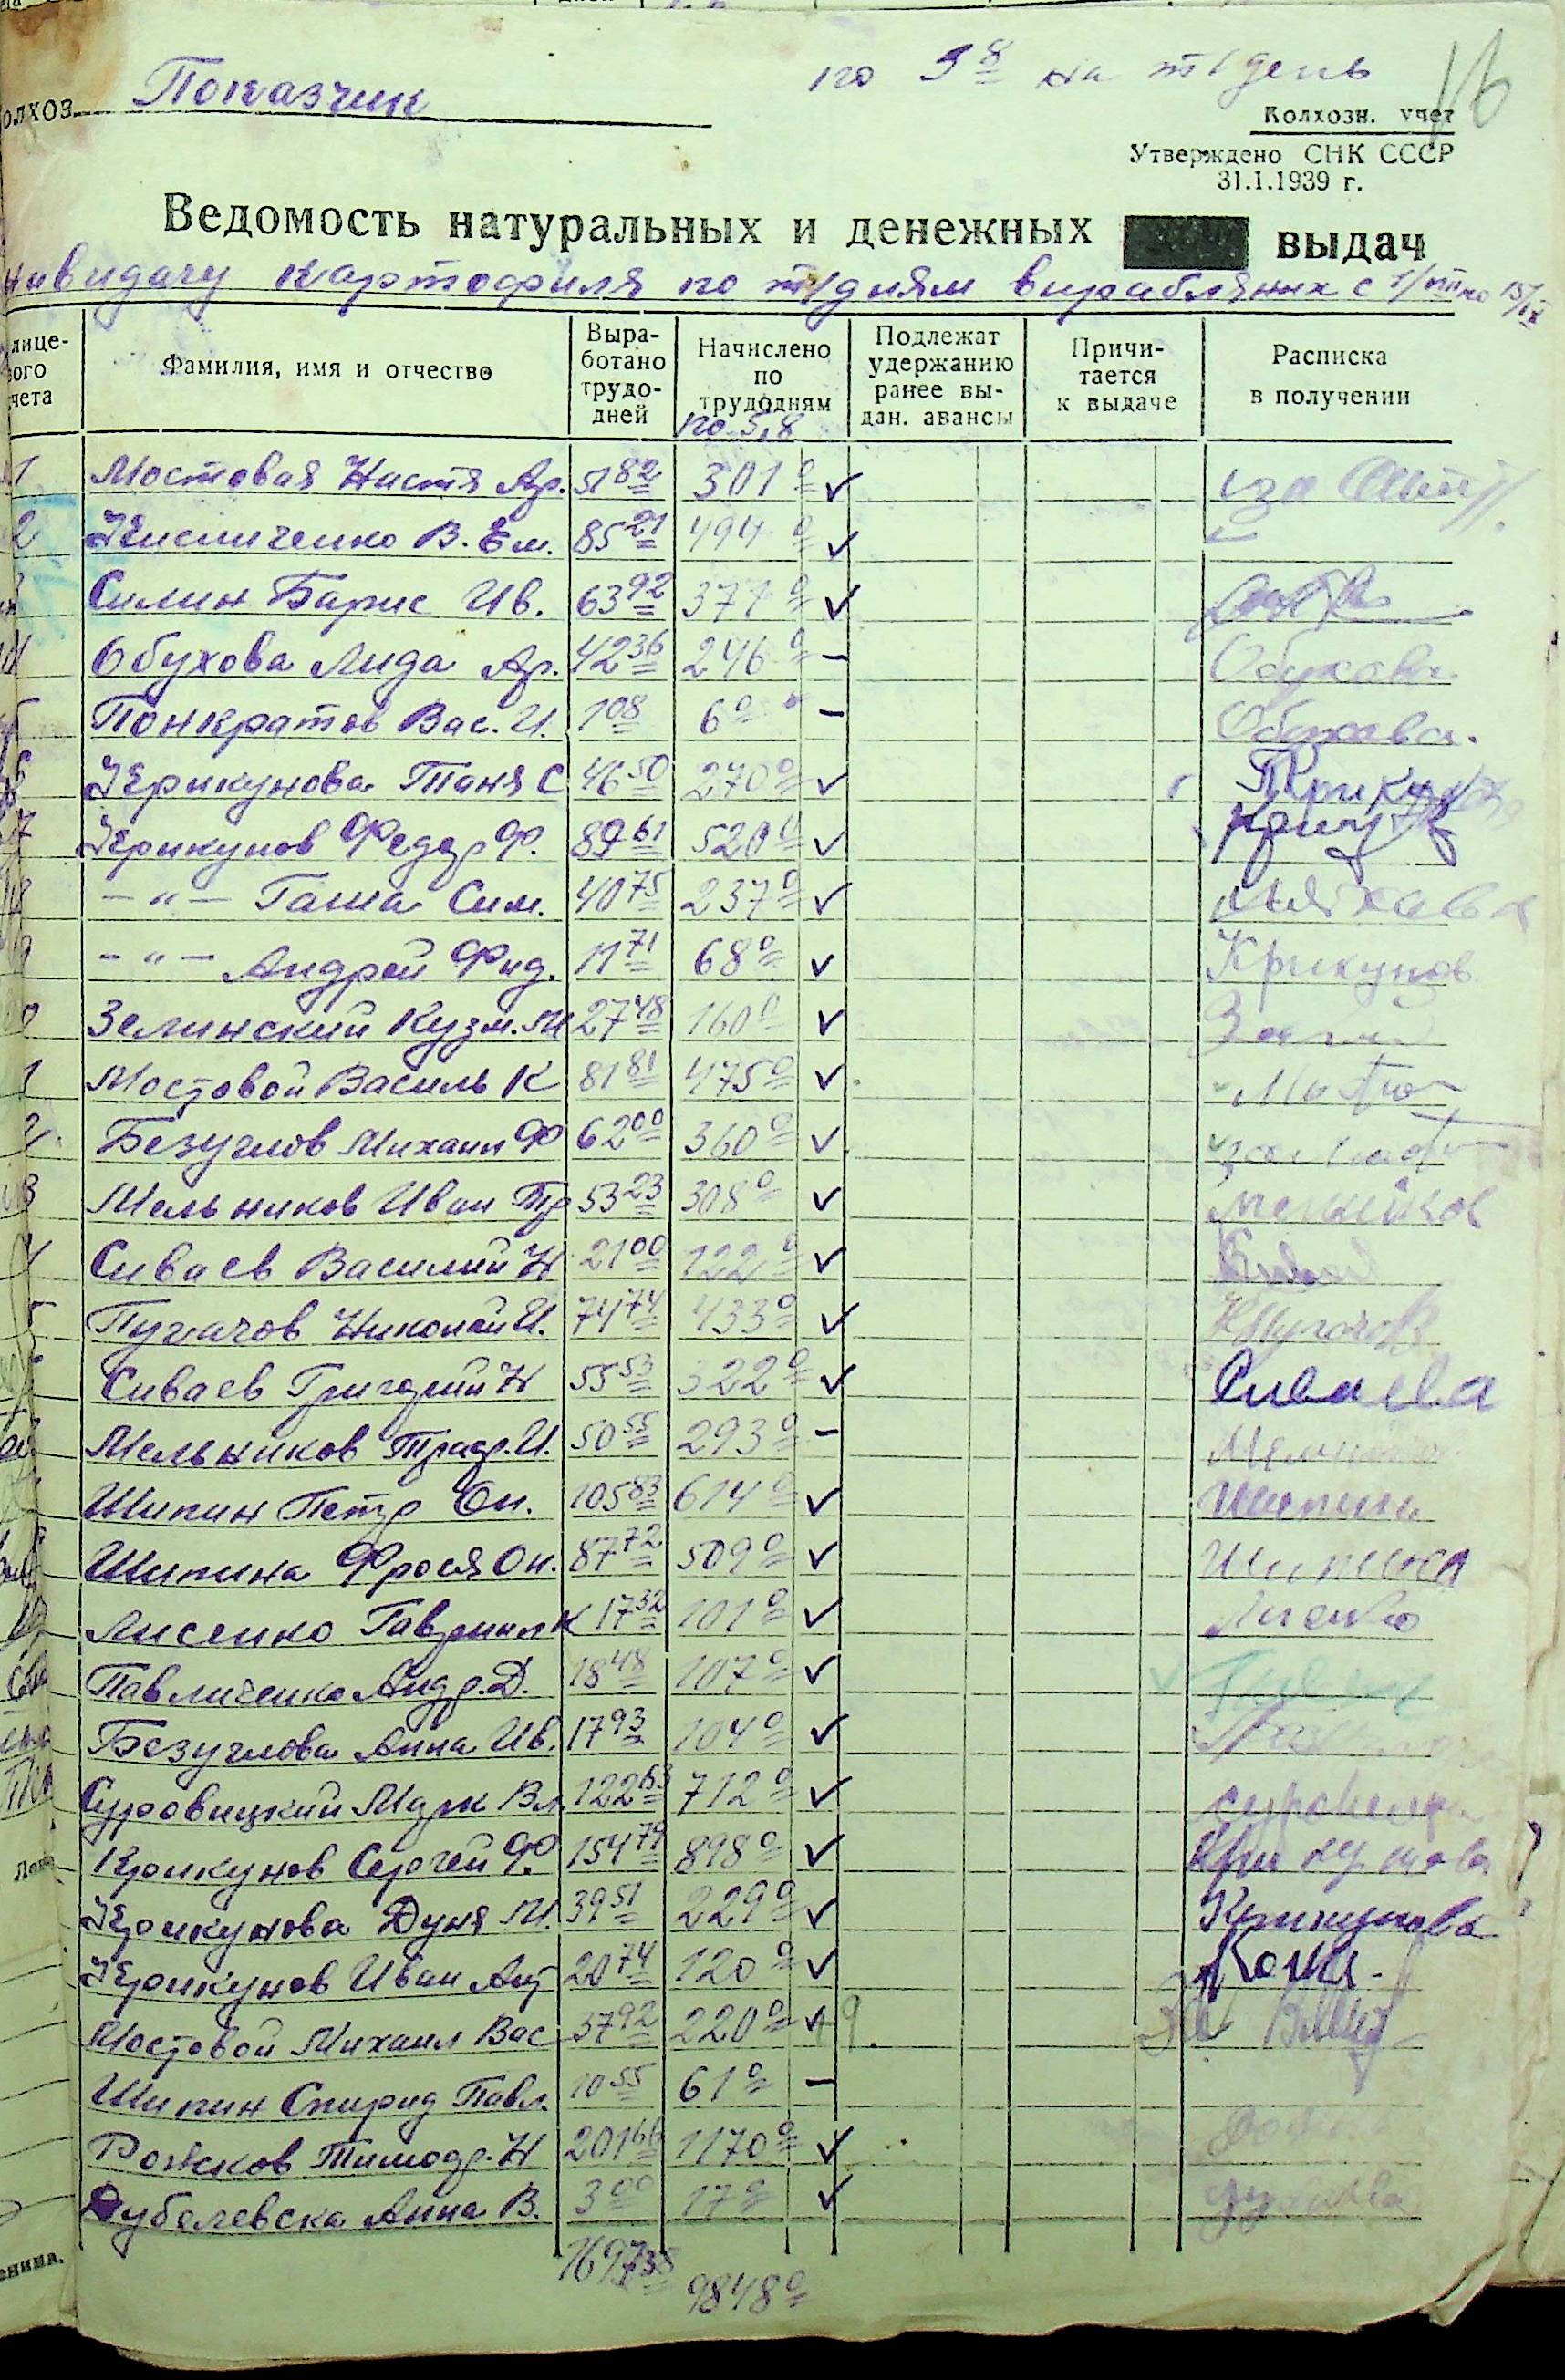 по 5 8 на т/день
16
олхоз Показчик
Колхозн. учет
Утверждено СНК СССР
31.1.1939 г.
Ведомость натуральных и денежных выдач
на видачу картофиля по т/дням вирабляних с 1/VIII по 15/IX
лице-
вого
чета
Фамилия, имя и отчество
Выра-
ботано
трудо-
дней
Начислено
по
трудодням
по 5,8
Подлежат
удержанию
ранее вы-
дан. авансы
Причи-
тается
к выдаче
Расписка
в получении
1 Мостовая Настя Ар. 51 82 301 0 ✓ за
2 Кисличенко В. Ем. 85 21 494 0 ✓
Силин Барис Ив. 63 92 371 0 ✓
Обухова Лида Ар. 42 36 246 0 – Обухова
Понкратов Вас. И. 1 08 6 0 – Обухова.
6 Крикунова Таня С 46 50 270 0 ✓ Крикун
7 Крикунов Федер Ф. 89 61 520 0 ✓
8 – " – Гаша Сим. 40 75 237 0 ✓
9 – " – Андрей Фид. 11 71 68 0 ✓ Крикунов
0 Зелинский Кузм. М 27 48 160 0 ✓
1 Мостовой Василь К 81 81 475 0 ✓
2 Безуглов Михаил Ф 62 00 360 0 ✓
3 Мельников Иван Тр 53 23 308 0 ✓ Мельников
4 Сиваев Василий Н 21 00 122 0 ✓
5 Пугачов Николай И. 74 74 433 0 ✓ НПугачов
Сиваев Григорий Н 55 53 322 0 ✓ Сиваева
Мельников Триф. И. 50 55 293 0 –
Шипин Петр Он. 105 83 614 0 ✓ Шипин
Шипина Фрося Он. 87 72 509 0 ✓ Шипина
Лисенко Гаврилп К 17 52 101 0 ✓ Лисенко
Павличенко Андр. Д. 18 48 107 0 ✓
Безуглова Анна Ив. 17 93 104 0 ✓
Суровицкий Марк Вл. 122 63 712 0 ✓
Крикунов Сергей Ф. 154 79 898 0 ✓ Крикунова
Крикунова Дуня М. 39 51 229 0 ✓ Крикунова
Крикунов Иван Ант 20 74 120 0 ✓
Мостовой Михаил Вас 37 92 220 0 ✓
Шипин Спирид Павл. 10 55 61 0 –
Рожков Тимофр. Н 201 66 1170 0 ✓
Дубелевска Анна В. 3 00 17 0 ✓
1697 38 9848 0
енина.